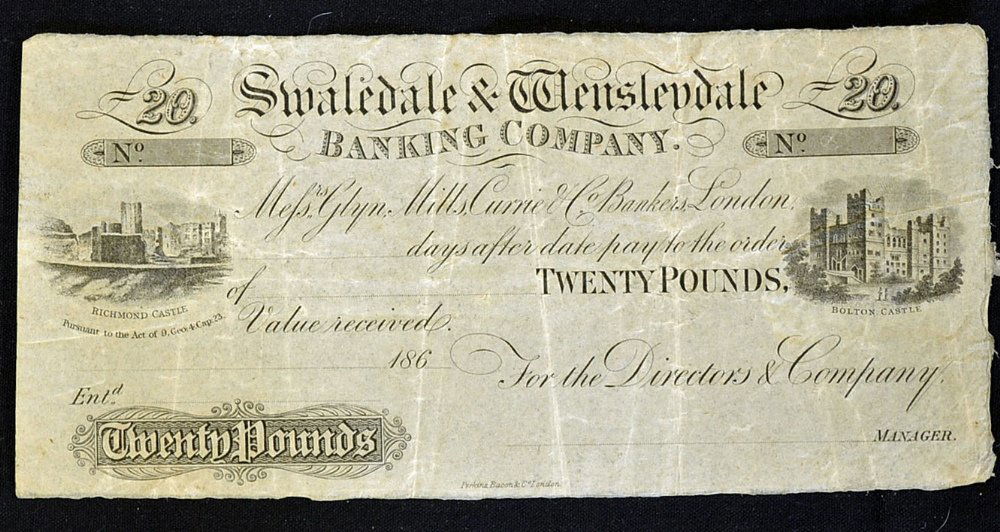 £20. Swaledale & Wensleydale £20.
BANKING COMPANY.
Nº Nº
Messrs Glyn, Mills, Currie & Cº Bankers, London,
days after date pay to the order
of TWENTY POUNDS,
RICHMOND CASTLE
Pursuant to the Act of 9, Geo: 4, Cap: 23.
BOLTON CASTLE
Value received.
186
For the Directors & Company.
Entd
Twenty Pounds
MANAGER.
Perkins, Bacon & Cº London.